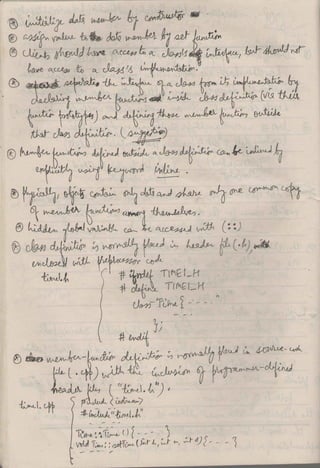 initialize data member by constructor
assign value to the data member by set function
Clients should have access to a class's interface, but should not
have access to a class's implementation.
separates the interface of a class from its implementation by
declaring member function inside class definition (via their
function prototypes) and defining those member function outside
that class definition. (suggestion)
Member functions defined outside a class definition can be inlined by
explicitly using keyword inline.
Physically, objects contain only data and share only one common copy
of member functions among themselves.
hidden global variable can be accessed with (::)
class definition is normally placed in header file (.h) with
enclosed with preprocessor code
time1.h
# ifndef TIME1_H
# define TIME1_H
class Time { - - - -
};
# endif
member-function definition is normally placed in source-code
file (.cpp) with the inclusion of programmer-defined
header files ("time1.h").
time1.cpp
#include <iostream>
#include "time1.h"
Time::Time () { - - - }
void Time::setTime (int h, int m, int s) { - - - }